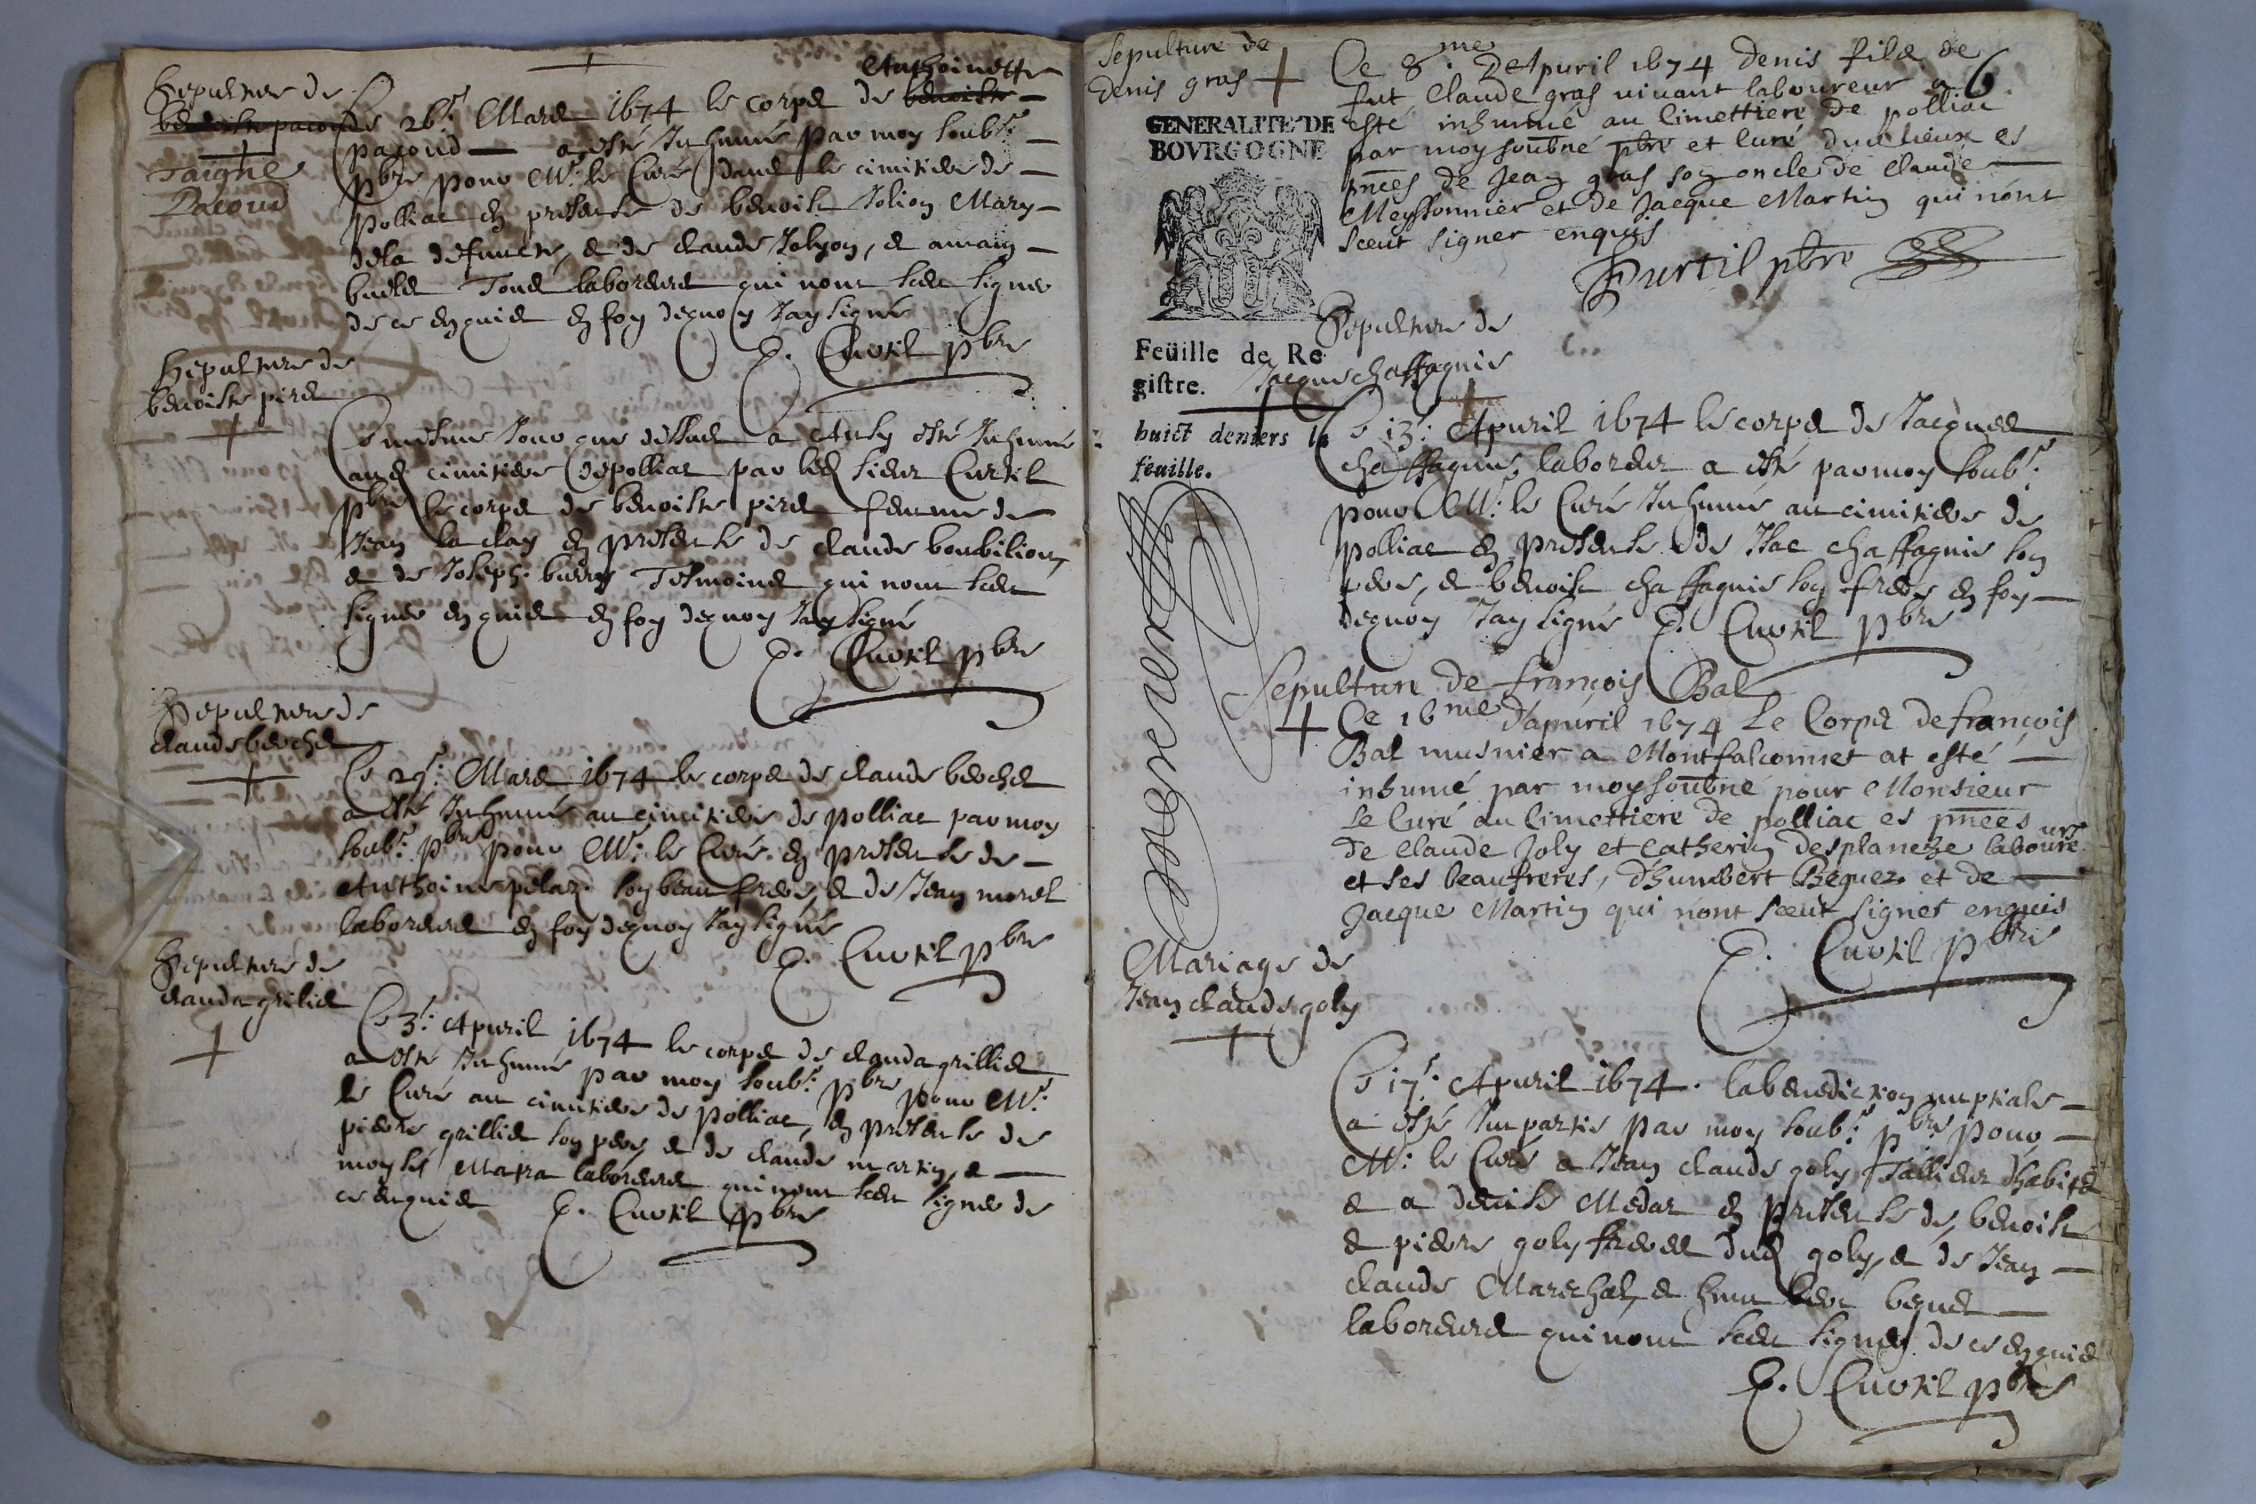 Sepulture de
Ce 26e Mars 1674 le corps de Anthoinette
pacoud a esté Inhumé par moy soubs.
pbre pour Mr. le Curé dans le cimitiere de
polliat en presence de benoist Jolion Mary
dela defuncte, et de claude Jolyon, et
Tous laboreurs qui nont sceu signer
de ce enquis en foy dequoy Jay signé
E. Curtil pbre
Pacoud
Sepulture de
benoiste pire
Ce mesme Jour que dessus a Aussy esté Inhumé
aud cimitiere de polliat par led sieur Curtil
pbre le corps de benoiste pire femme de
Jean en presence de claude
et de Joseph Tesmoins qui nont sceu
signer enquis en foy dequoy Jay signé
E. Curtil pbre
Sepulture de
claude berchet
Ce 29e. Mars 1674 le corps de claude berchet
a esté Inhumé au cimitiere de polliat par moy
soubs. pbre pour Mr. le Curé en presence de
Anthoine pelaz son beau frere, et de Jean morel
laboreurs en foy dequoy Jay signé
E. Curtil pbre
Sepulture de
clauda grilliet
Ce 3e. Apuril 1674 le corps de clauda grilliet
a esté Inhumé par moy soubs. pbre pour Mr.
le Curé au cimitiere de polliat, en presence de
pierre grilliet son pere, et de claude martin, et
moyse laboreurs qui nont sceu signer de
ce enquis E. Curtil pbre
Sepulture de
Denis gras
6
Ce 8.me D'Apuril 1674 Denis fils de
fut Claude gras vivant laboureur a
esté inhumé au Cimettiere de polliac
par moy soubné pbre et Curé dud lieux es
pnces de Jean gras son oncle de Claude
Meyssonnier et de Jacque Martin qui nont
sceut signer enquis
Curtil pbre
GENERALITE DE
BOVRGOGNE
Feüille de Re
gistre.
huict deniers la
feuille.
Sepulture de
Jacque chaffagnie
Ce 13e. Apuril 1674 le corps de Jacques
chaffagnie, laboreur a esté par moy soubs.
pour Mr. le Curé Inhumé au cimitiere de
polliat en presence de Isac chaffagnie son
pere, et benoist chaffagnie son frere en foy
dequoy Jay signé E. Curtil pbre
Sepulture de françois Bal
Ce 16me D'apuril 1674 Le Corps de françois
Bal musnier a Montfalconnet at esté
inhumé par moy soubné pour Monsieur
Le Curé au Cimettiere de polliac es pnces
de Claude Joly et Catherin desplanche laboureurs
et ses beaufreres, d'humbert Beguez et de
Jacque Martin qui nont sceut signer enquis
E. Curtil pbre
Mariage de
Jean claude goly
Ce 17e. Apuril 1674. la benediction nuptiale
a esté Impartie par moy soubs. pbre pour
Mr. le Curé a Jean claude goly Tallieur d'habits
et a denise Medar en presence de, benoist
et pierre goly freres dud goly, et de Jean
claude Mareschal, et humbert beguet
laboreurs qui nont sceu signer de ce enquis
E. Curtil pbre